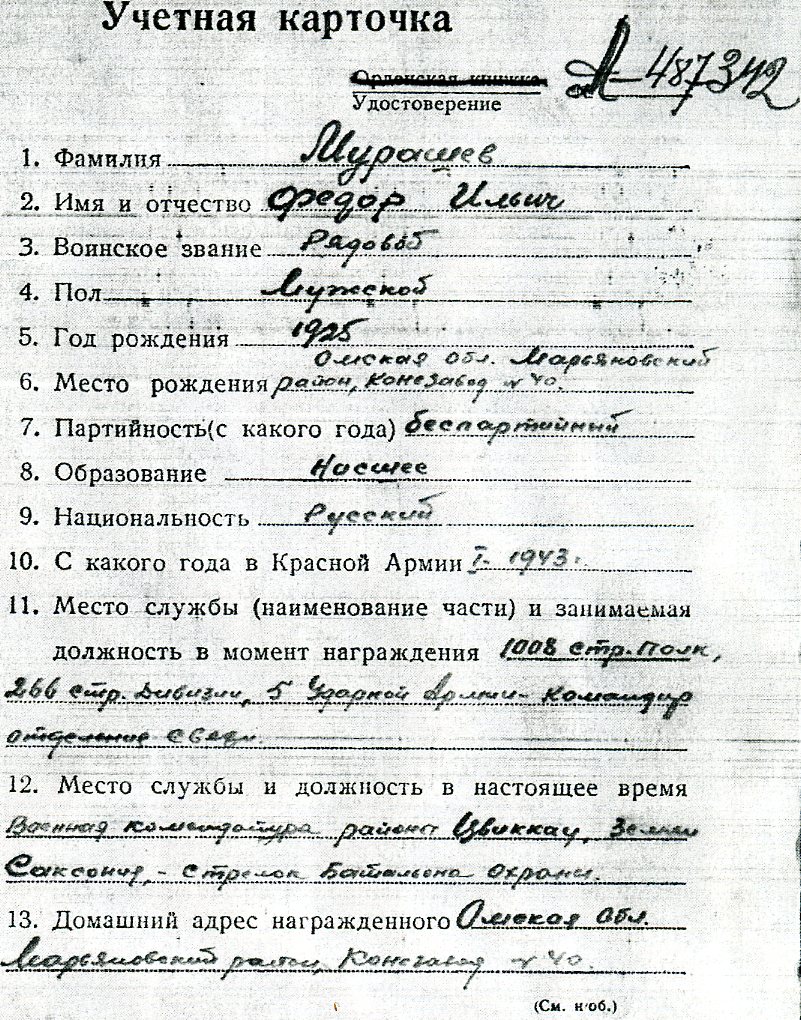 Учетная карточка
Орденская книжка А-487342
Удостоверение
1. Фамилия Мурашев
2. Имя и отчество Федор Ильич
3. Воинское звание Рядовой
4. Пол Мужской
5. Год рождения 1925
Омская обл. Марьяновский
6. Место рождения район, Конезавод №40.
7. Партийность(с какого года) беспартийный
8. Образование Насшее
9. Национальность Русский
10. С какого года в Красной Армии I-1943г.
11. Место службы (наименование части) и занимаемая
должность в момент награждения 1008 стр. Полк,
266 стр. Дивизии, 5 Ударной Армии - Командир
отделение связи.
12. Место службы и должность в настоящее время
Военная комендатура района Цвиккау, Земли
Саксония, - стрелок Батальона охраны.
13. Домашний адрес награжденного Омская обл.
Марьяновский район, Конезавод №40.
(См. н/об.)